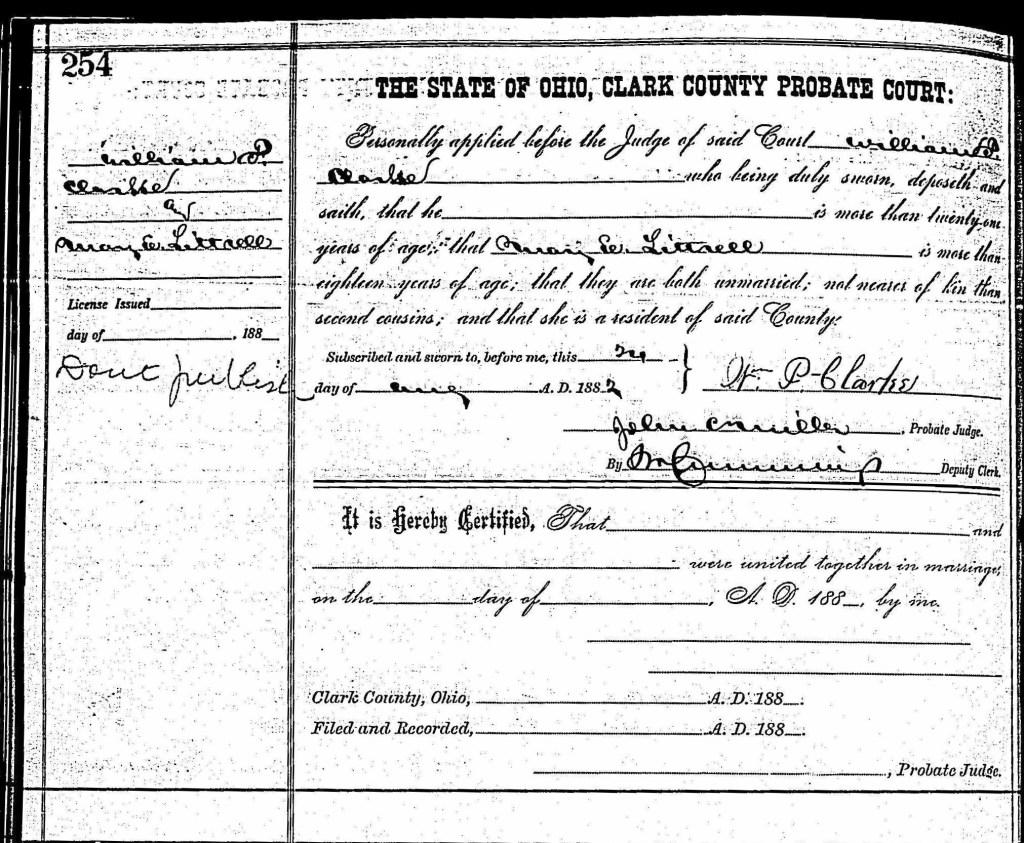 254
THE STATE OF OHIO, CLARK COUNTY PROBATE COURT:
William P.
Clarke
and
Mary E. Littrell
License Issued
day of , 188
Dont publish
Personally applied before the Judge of said Court William P.
Clarke who being duly sworn, deposeth and
saith, that he is more than twenty-one
years of age; that Mary E. Littrell is more than
eighteen years of age; that they are both unmarried; not nearer of kin than
second cousins; and that she is a resident of said County.
Subscribed and sworn to, before me, this 24
day of Aug A. D. 1882
Wm P Clarke
John C Miller , Probate Judge.
By Deputy Clerk.
It is Hereby Certified, That and
were united together in marriage,
on the day of , A. D. 188 , by me.
Clark County, Ohio, A. D. 188 .
Filed and Recorded, A. D. 188 .
, Probate Judge.